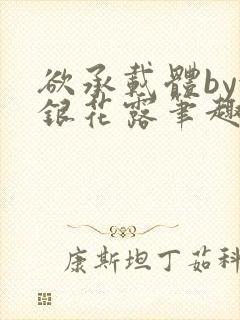 欲承载體by
銀花露筆趣
康斯坦丁茹科